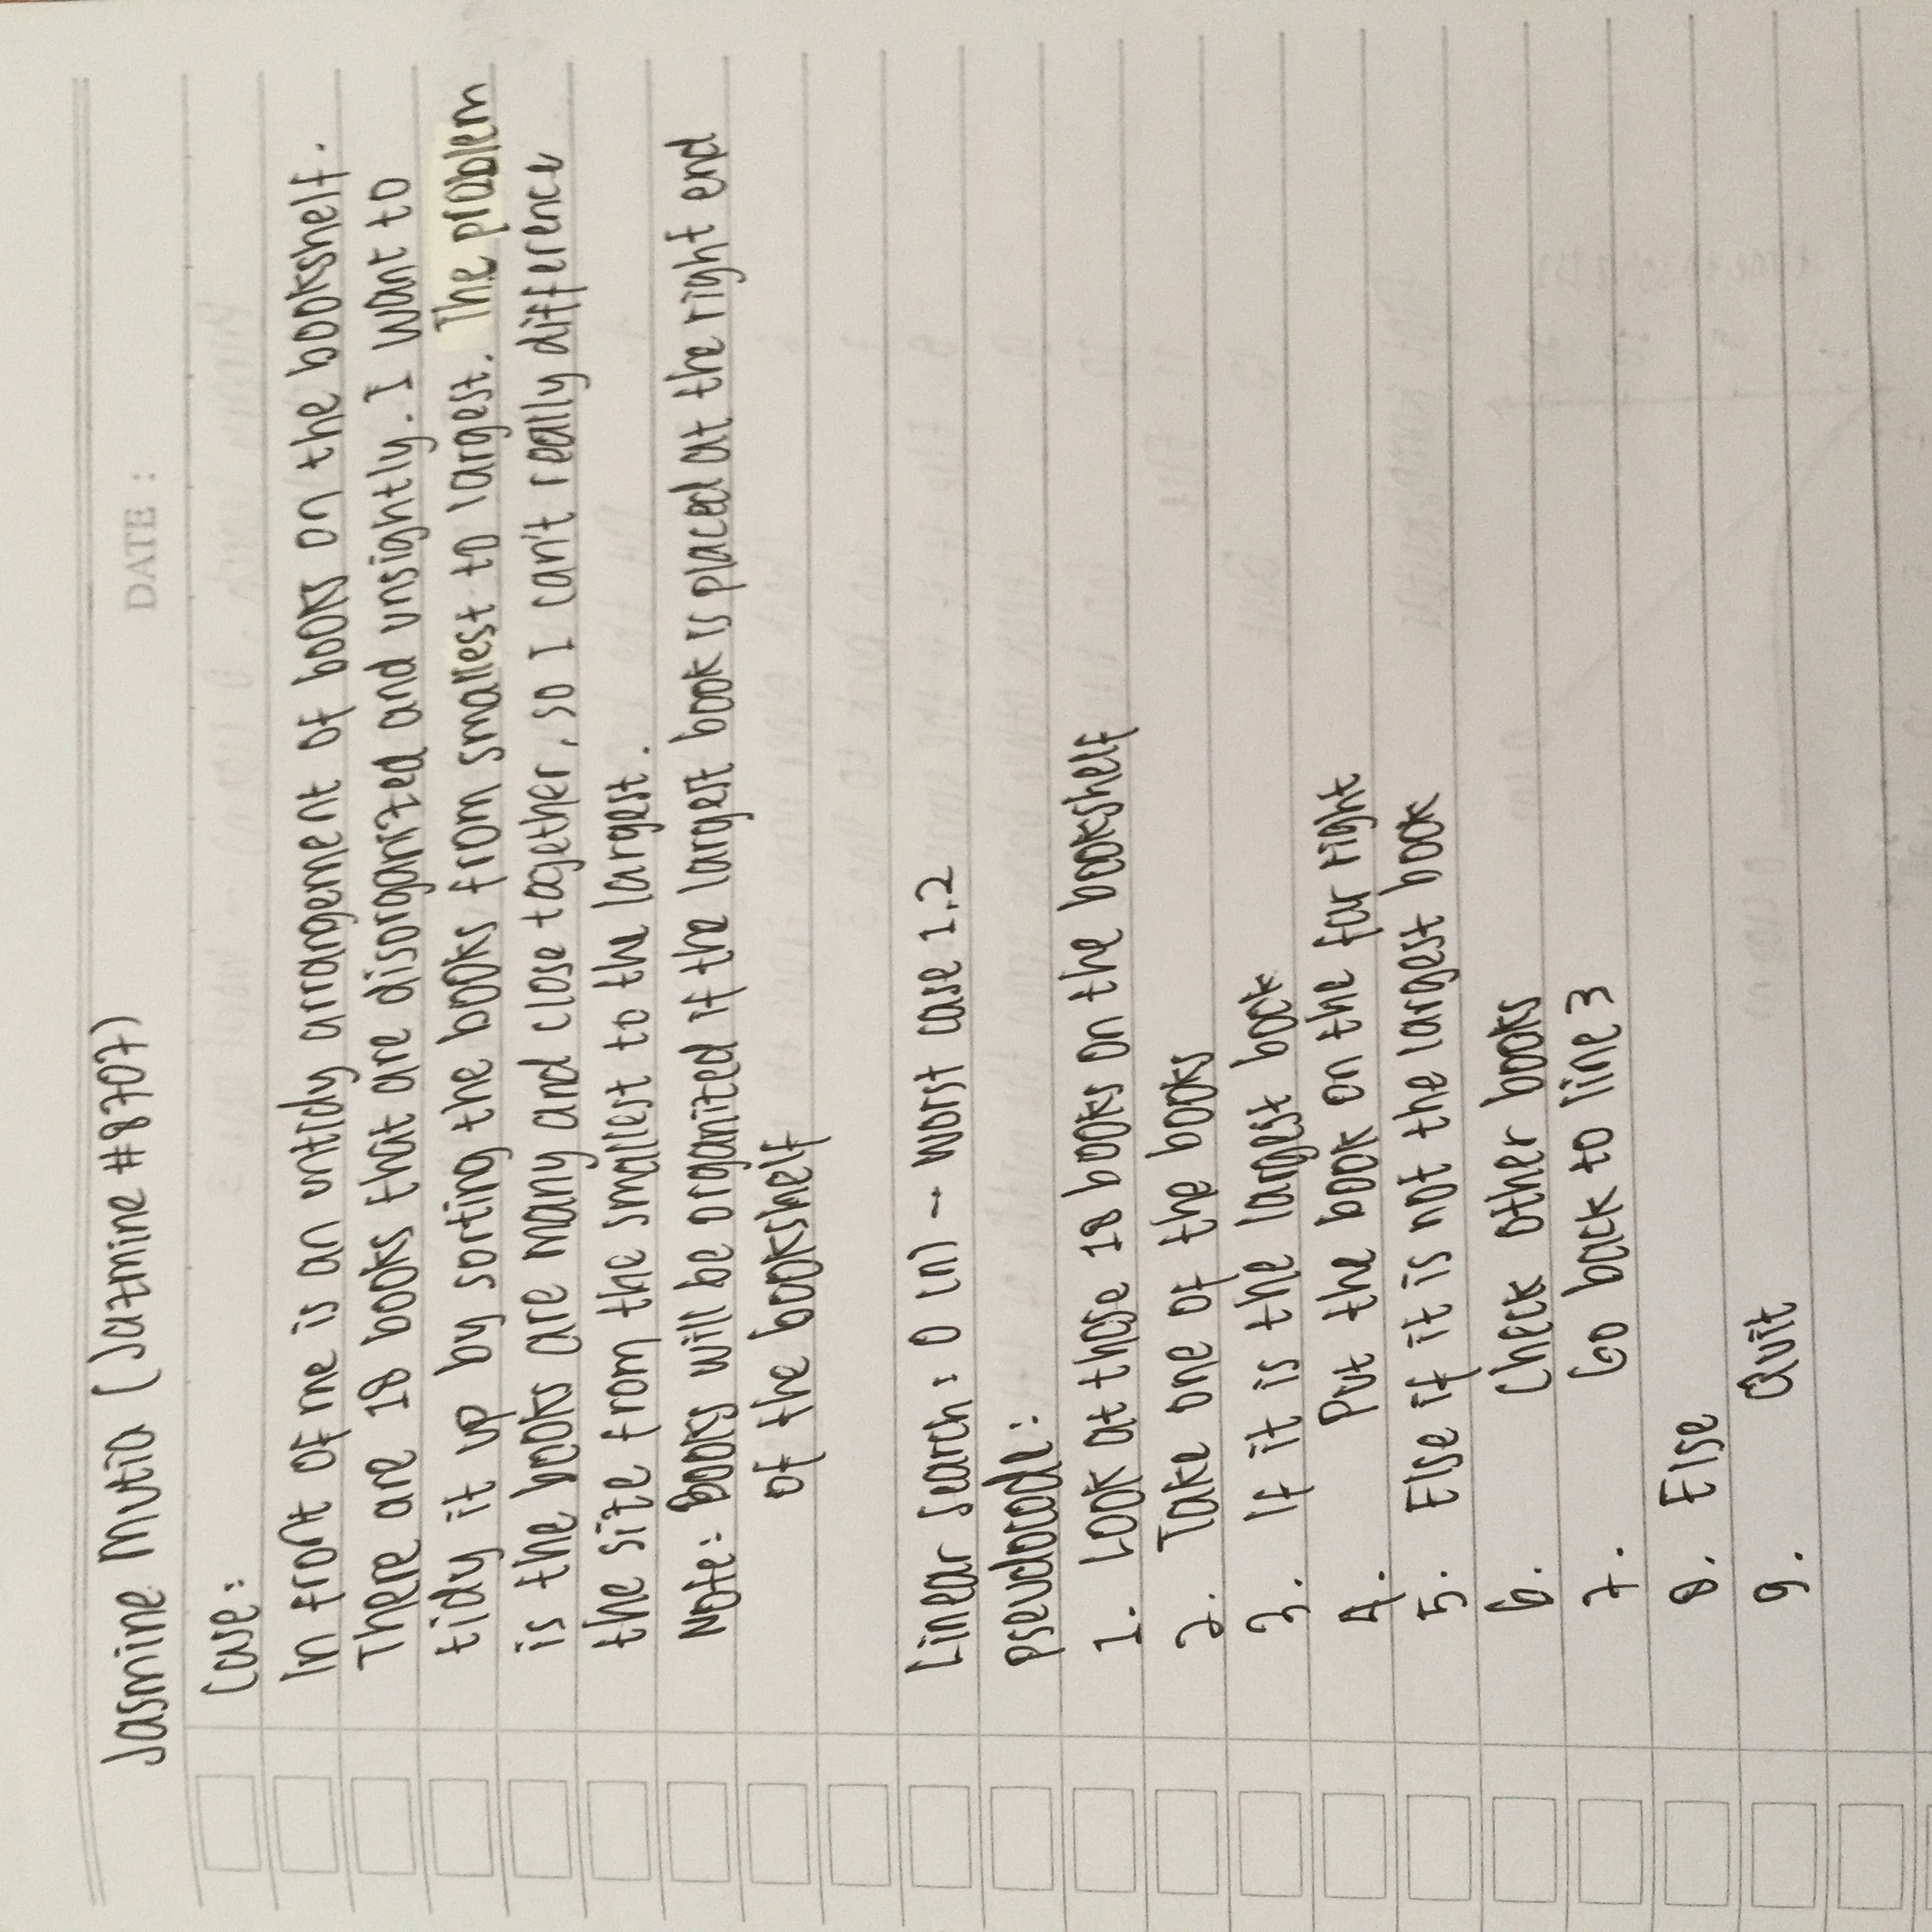 Jasmine Mutia (Jazmine #8707)
DATE :
Case:
In front of me is an untidy arrangement of books on the bookshelf.
There are 18 books that are disorganized and unsightly. I want to
tidy it up by sorting the books from smallest to largest. The problem
is the books are many and close together, so I can't really difference
the size from the smallest to the largest.
Note: Books will be organized if the largest book is placed at the right end
of the bookshelf
Linear Search: O (n) -- Worst case 1.2
pseudocode:
1. Look at those 18 books on the bookshelf
2. Take one of the books
3. If it is the largest book
4. Put the book on the far right
5. Else if it is not the largest book
6. Check other books
7. Go back to line 3
8. Else
9. Quit